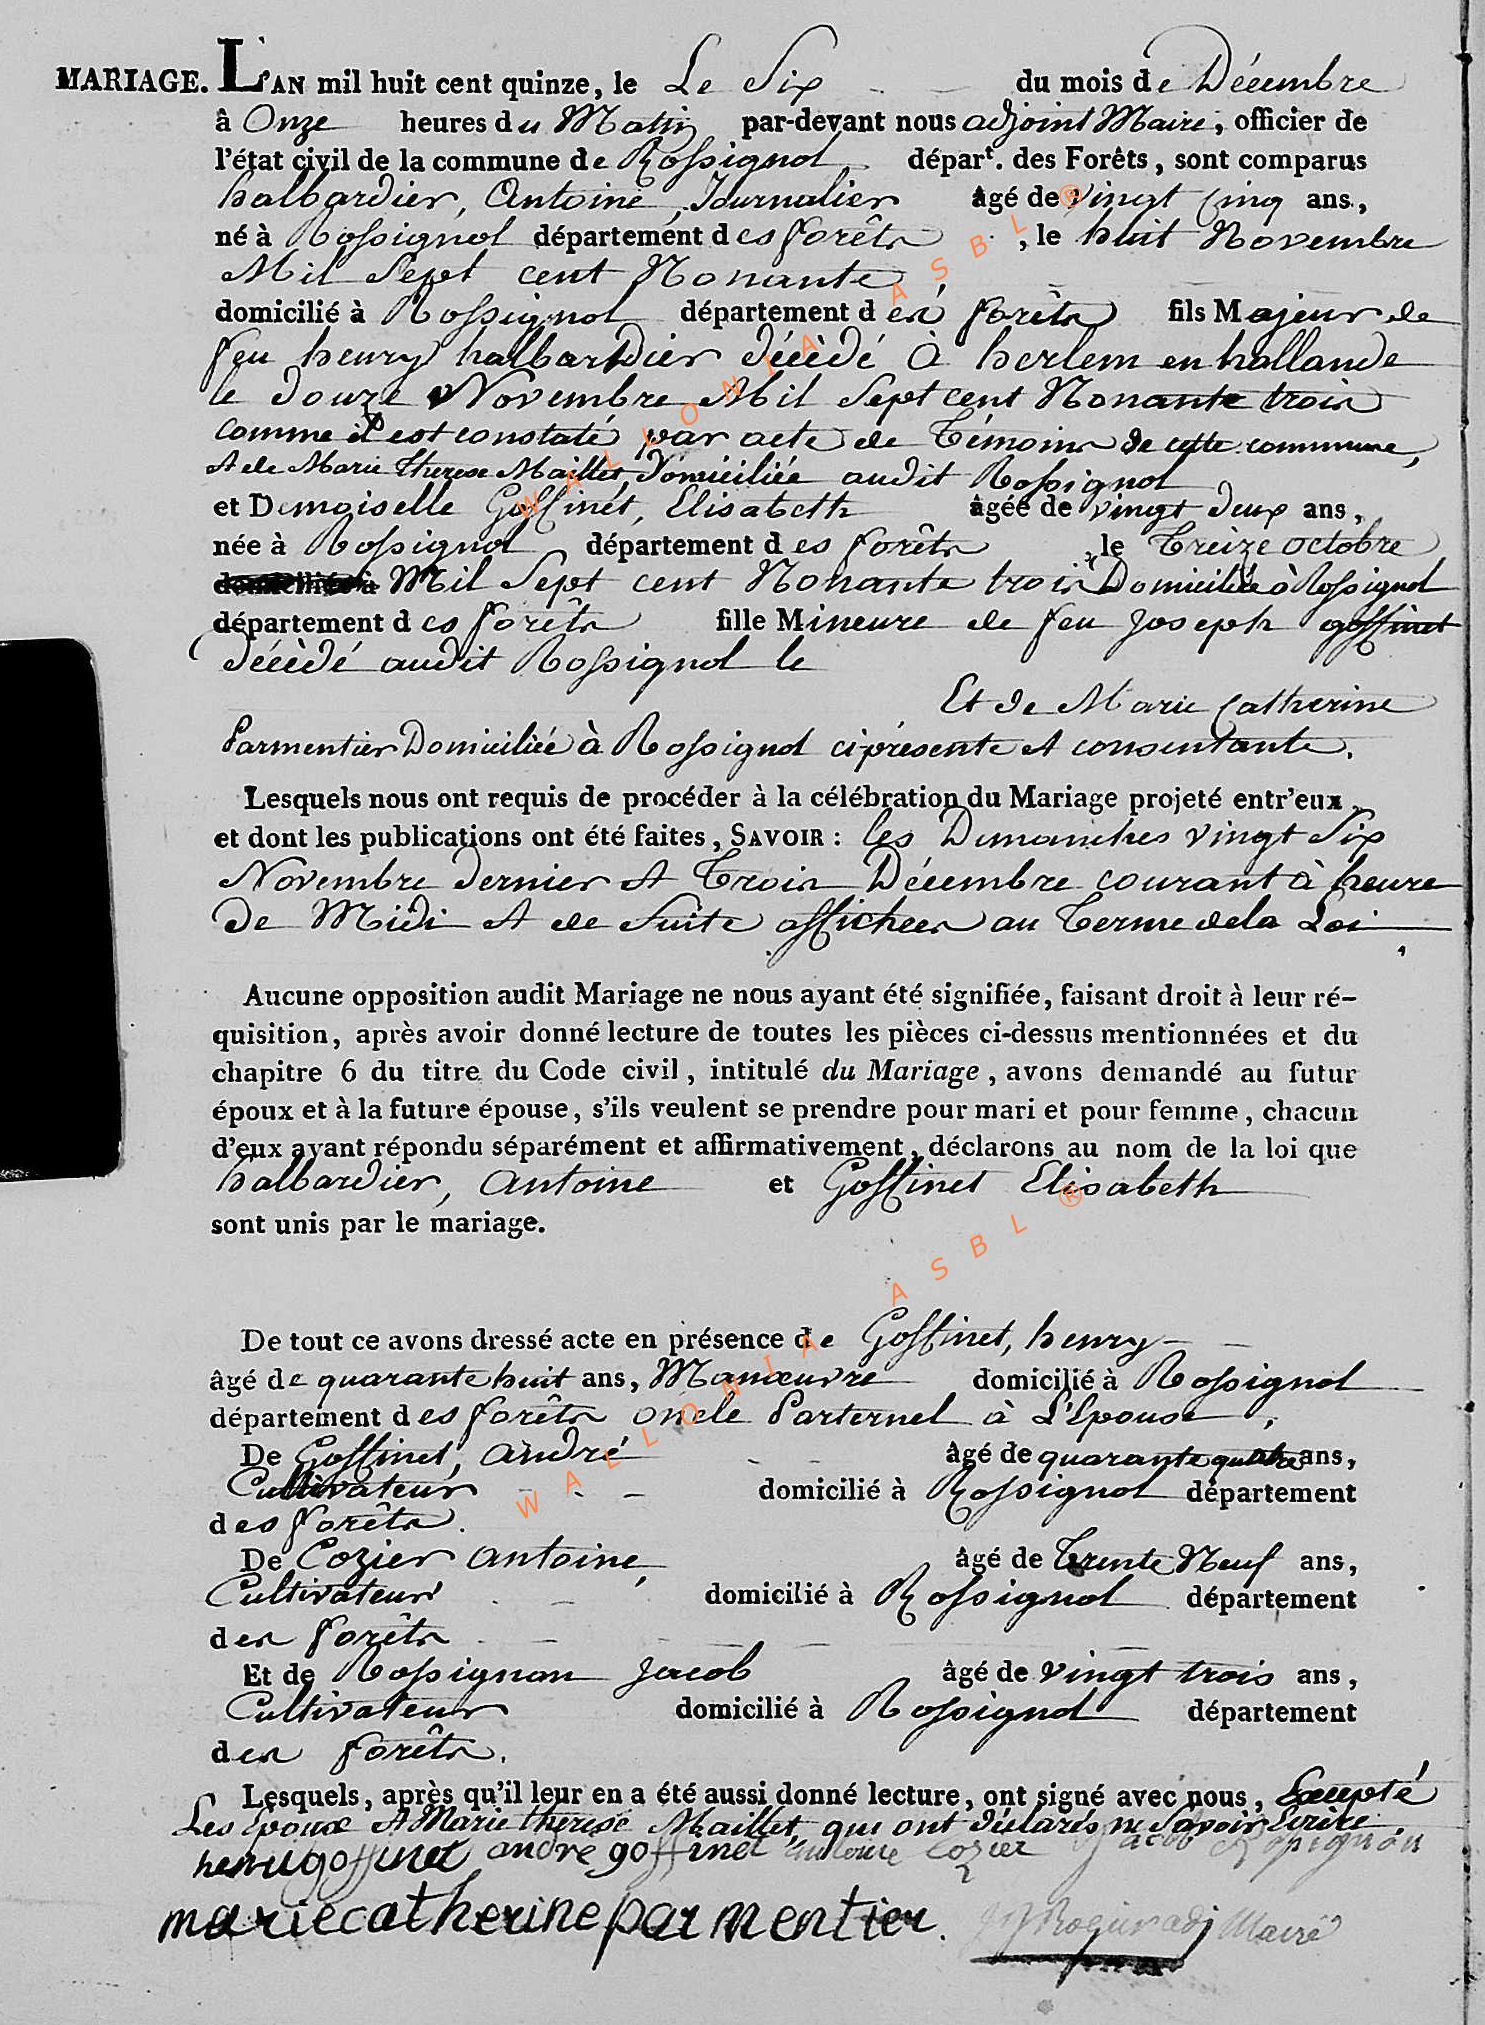 MARIAGE. L'AN mil huit cent quinze, le Le Six du mois de Décembre
à Onze heures du Matin par-devant nous adjoint Maire, officier de
l'état civil de la commune de Rossignol départ. des Forêts, sont comparus
halbardier, Antoine, Journalier âgé de vingt Cinq ans,
né à Rossignol département des forêts, le huit Novembre
Mil Sept cent Nonante,
domicilié à Rossignol département des forêts fils Majeur de
feu henry halbardier décèdé à herlem en hollande
le douze Novembre Mil Sept cent Nonante trois
comme il est constaté par acte de Témoins de cette commune,
et de Marie therese Maillet, Domiciliée audit Rossignol
et Demoiselle Goffinet, Elisabeth âgée de vingt deux ans,
née à Rossignol département des forêts le Treize octobre
domiciliée à Mil Sept cent Nonante trois Domiciliée à Rossignol
département des forêts fille Mineure de feu joseph goffinet
décèdé audit Rossignol le
Et de Marie Catherine
Parmentier Domiciliée à Rossignol ci présente et consentante.
Lesquels nous ont requis de procéder à la célébration du Mariage projeté entr'eux
et dont les publications ont été faites, SAVOIR : les Dimanches vingt Six
Novembre dernier et Trois Décembre courant à heure
de Midi et de Suite affichées au Terme de la Loi
Aucune opposition audit Mariage ne nous ayant été signifiée, faisant droit à leur ré-
quisition, après avoir donné lecture de toutes les pièces ci-dessus mentionnées et du
chapitre 6 du titre du Code civil, intitulé du Mariage, avons demandé au futur
époux et à la future épouse, s'ils veulent se prendre pour mari et pour femme, chacun
d'eux ayant répondu séparément et affirmativement, déclarons au nom de la loi que
halbardier, Antoine et Goffinet Elisabeth
sont unis par le mariage.
De tout ce avons dressé acte en présence de Goffinet, henry
âgé de quarante huit ans, Manœuvre domicilié à Rossignol
département des forêts oncle Parternel à L'Epouse,
De Goffinet, André âgé de quarante quatre ans,
Cultivateur domicilié à Rossignol département
des forêts.
De Cozier Antoine, âgé de Trente Neuf ans,
Cultivateur domicilié à Rossignol département
des forêts
Et de Rossignon Jacob âgé de vingt trois ans,
Cultivateur domicilié à Rossignol département
des forêts.
Lesquels, après qu'il leur en a été aussi donné lecture, ont signé avec nous, Excepté
Les époux et Marie therese Maillet, qui ont déclarés ne Savoir Ecrire.
henri goffinet andré goffinet antoine Cozier Jacob Rossignon
marie catherine parmentier. adj Maire
WALLONIA ASBL ®
WALLONIA ASBL ®